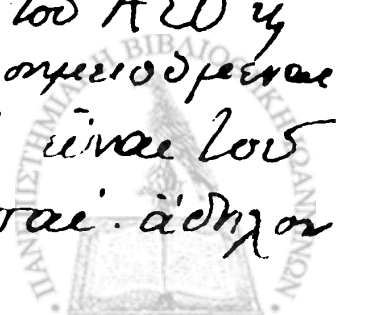 τοῦ
σημειούμεναι
εἶναι τοῦ
ται· ἄδηλον
ΠΑΝΕΠΙΣΤΗΜΙΑΚΗ ΒΙΒΛΙΟΘΗΚΗ ΙΩΑΝΝΙΝΩΝ